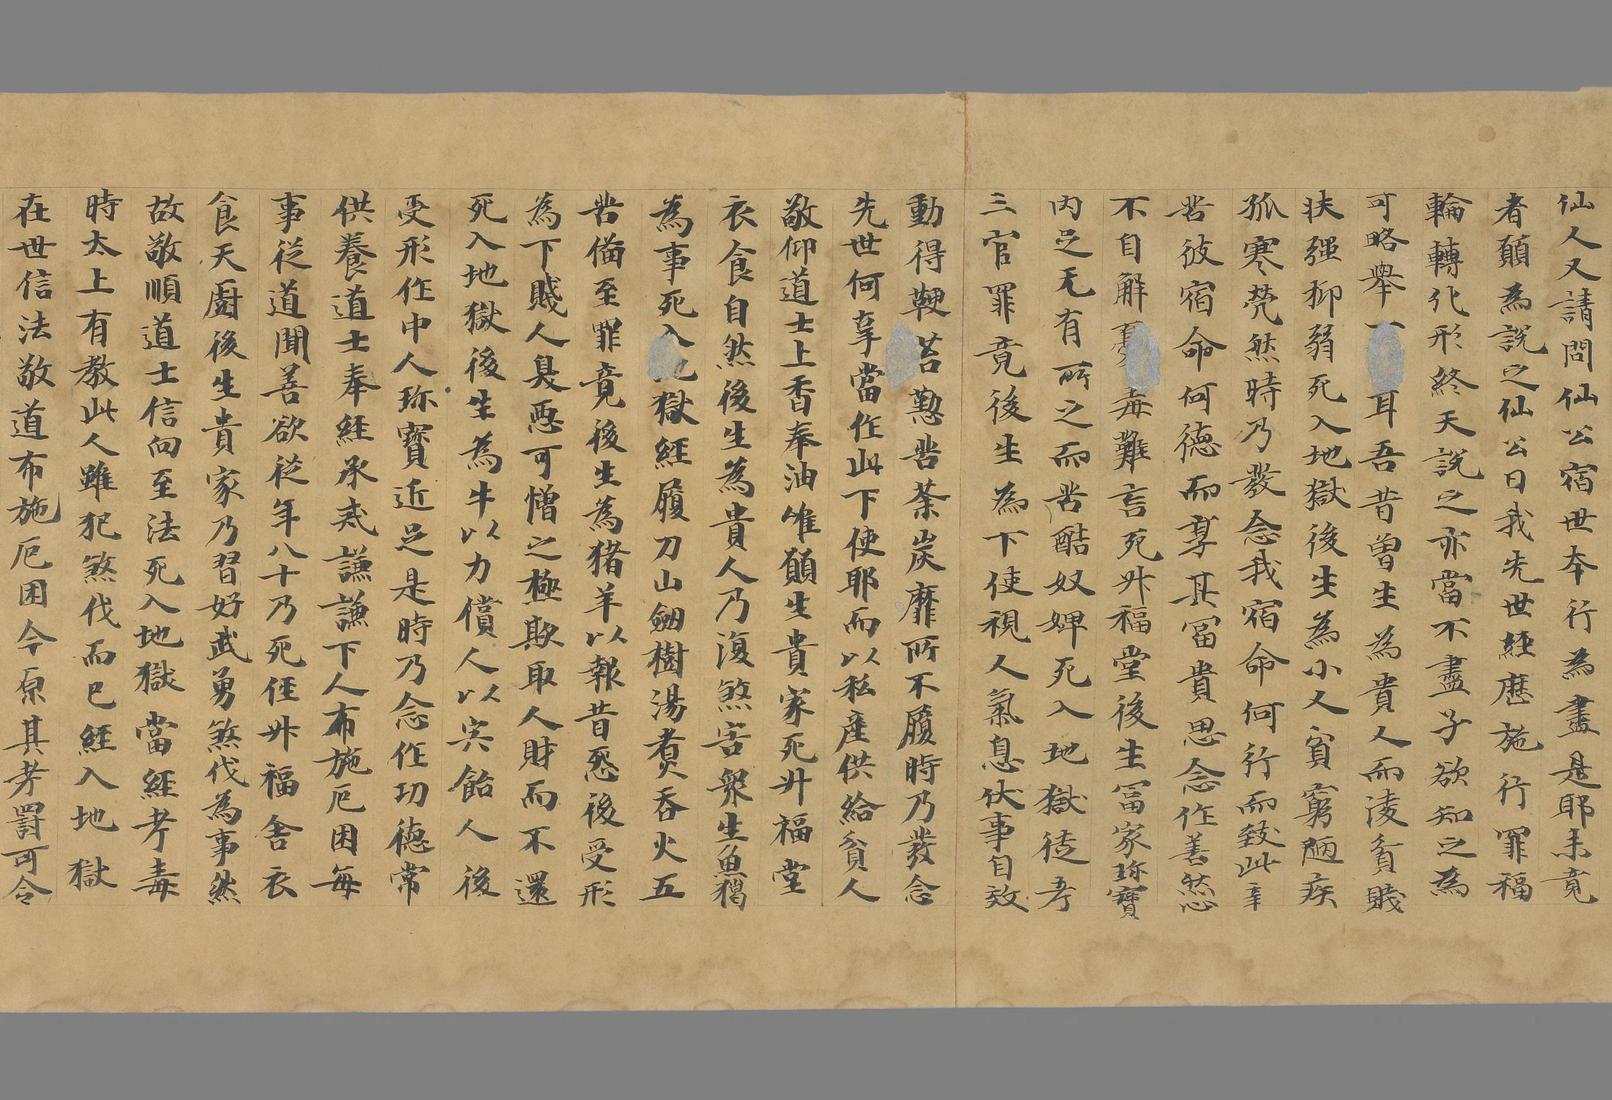 仙人又請問仙公宿世本行為盡是耶未竟
者願為說之仙公曰我先世經歷施行罪福
輪轉化形終天說之亦當不盡子欲知之為
可略舉一耳吾昔曾生為貴人而淩貧賤
扶强抑弱死入地獄後生為小人貧窮陋疾
孤寒煢然時乃發念我宿命何行而致此辛
苦彼宿命何德而享其冨貴思念作善然
不自解憂毒難言死升福堂後生冨家珎寶
內足无有所之而苦酷奴婢死入地獄徒考
三官罪竟後生為下使視人氣息伏事自效
動得鞕苔懃苦荼炭靡所不履時乃發念
先世何享當作此下使耶而以私產供給貧人
敬仰道士上香奉油唯願生貴家死升福堂
衣食自然後生為貴人乃復煞害衆生魚獵
為事死入地獄經履刀山劒樹湯煮吞火五
苦備至罪竟後生為猪羊以報昔惌後受形
為下賤人臭惡可憎之極欺取人財而不還
死入地獄後生為牛以力償人以宍飴人後
受形作中人珎寶近足是時乃念作功德常
供養道士奉經承戒謙謙下人布施厄困每
事從道聞善欲從年八十乃死俓升福舍衣
食天廚後生貴家乃習好武勇煞伐為事然
故敬順道士信向至法死入地獄當經考毒
時太上有教此人雖犯煞伐而已經入地獄
在世信法敬道布施厄困今原其考罰可令